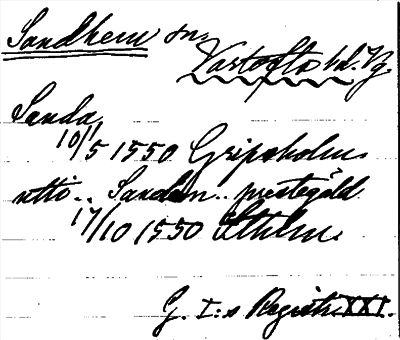 Sandhem sn.
Vartofta hd. Vg
Sanda
10/5 1550 Gripsholm
utti .. Sandem .. prestegäld
17/10 1550 Sthlm
G. I:s Registr. XXI.